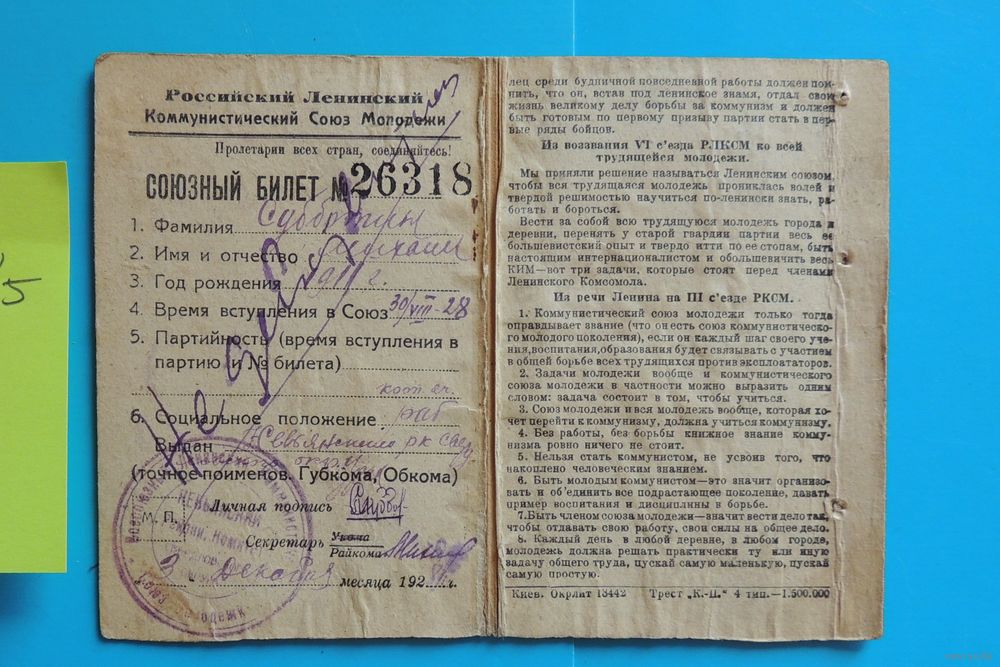 5
Российский Ленинский
Коммунистический Союз Молодежи
Пролетарии всех стран, соединяйтесь!
СОЮЗНЫЙ БИЛЕТ № 26318
1. Фамилия
2. Имя и отчество
3. Год рождения 1911 г.
4. Время вступления в Союз 30/VIII-28
5. Партийность (время вступления в
партию и № билета)
6. Социальное положение раб
Выдан Невьянским РК
(точное поименов. Губкома, Обкома)
Личная подпись
М. П.
Секретарь Укома
Райкома
3 Декабря месяца 192 г.
лец среди будничной повседневной работы должен пом-
нить, что он, встав под ленинское знамя, отдал свою
жизнь великому делу борьбы за коммунизм и должен
быть готовым по первому призыву партии стать в пер-
вые ряды бойцов.
Из воззвания VI с'езда РЛКСМ ко всей
трудящейся молодежи.
Мы приняли решение называться Ленинским союзом,
чтобы вся трудящаяся молодежь прониклась волей и
твердой решимостью научиться по-ленински знать, ра-
ботать и бороться.
Вести за собой всю трудящуюся молодежь города и
деревни, перенять у старой гвардии партии весь ее
большевистский опыт и твердо итти по ее стопам, быть
настоящим интернационалистом и обольшевичить весь
КИМ—вот три задачи, которые стоят перед членами
Ленинского Комсомола.
Из речи Ленина на III с'езде РКСМ.
1. Коммунистический союз молодежи только тогда
оправдывает звание (что он есть союз коммунистическо-
го молодого поколения), если он каждый шаг своего уче-
ния, воспитания, образования будет связывать с участием
в общей борьбе всех трудящихся против эксплоататоров.
2. Задачи молодежи вообще и коммунистического
союза молодежи в частности можно выразить одним
словом: задача состоит в том, чтобы учиться.
3. Союз молодежи и вся молодежь вообще, которая хо-
чет перейти к коммунизму, должна учиться коммунизму.
4. Без работы, без борьбы книжное знание комму-
низма ровно ничего не стоит.
5. Нельзя стать коммунистом, не усвоив того, что
накоплено человеческим знанием.
6. Быть молодым коммунистом—это значит организо-
вать и об'единить все подрастающее поколение, давать
пример воспитания и дисциплины в борьбе.
7. Быть членом союза молодежи—значит вести дело так,
чтобы отдавать свою работу, свои силы на общее дело.
8. Каждый день в любой деревне, в любом городе,
молодежь должна решать практически ту или иную
задачу общего труда, пускай самую маленькую, пускай
самую простую.
Киев. Окрлит 13442 Трест „К.-П.“ 4 тип.—1.500.000